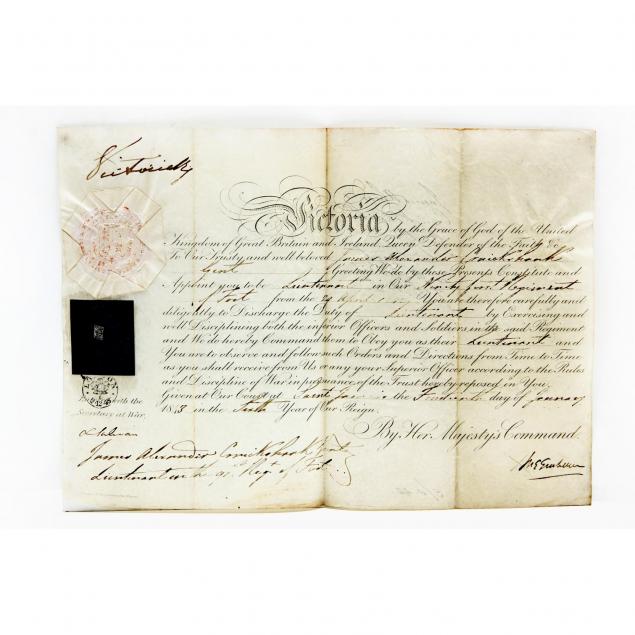 Victoria
Victoria by the Grace of God of the United
Kingdom of Great Britain and Ireland, Queen, Defender of the Faith &c
To Our Trusty and well beloved James Alexander Cruickshank
Gent Greeting We do by these Presents Constitute and
Appoint you to be Lieutenant in Our Ninety first Regiment
of Foot from the You are therefore carefully and
diligently to Discharge the Duty of Lieutenant by Exercising and
well Disciplining both the inferior Officers and Soldiers in the said Regiment
and We do hereby Command them to Obey you as their Lieutenant and
You are to observe and follow such Orders and Directions from Time to Time
as you shall receive from Us or any your Superior Officer according to the Rules
and Discipline of War in pursuance of the Trust hereby reposed in You
Given at Our Court at Saint James the day of January
1843 in the Sixth Year of Our Reign.
By Her Majesty's Command.
with the
Secretary at War.
James Alexander Cruickshank Gent
Lieutenant in the 91st Regt of Foot